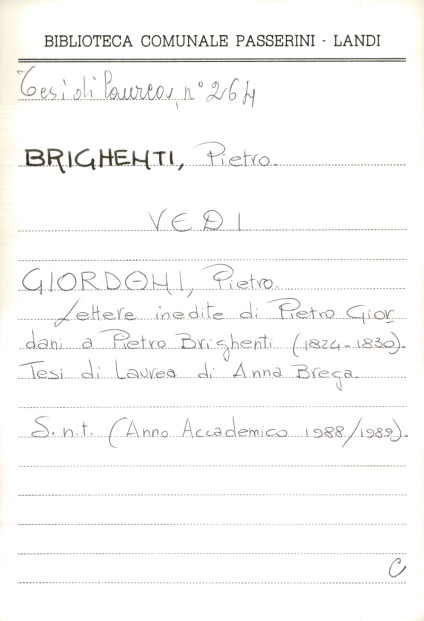 BIBLIOTECA COMUNALE PASSERINI - LANDI
Tesi di laurea, n° 264
BRIGHENTI, Pietro.
VEDI
GIORDANI, Pietro.
Lettere inedite di Pietro Gior
dani a Pietro Brighenti (1824-1830).
Tesi di Laurea di Anna Brega.
S.n.t. (Anno Accademico 1988/1989).
C